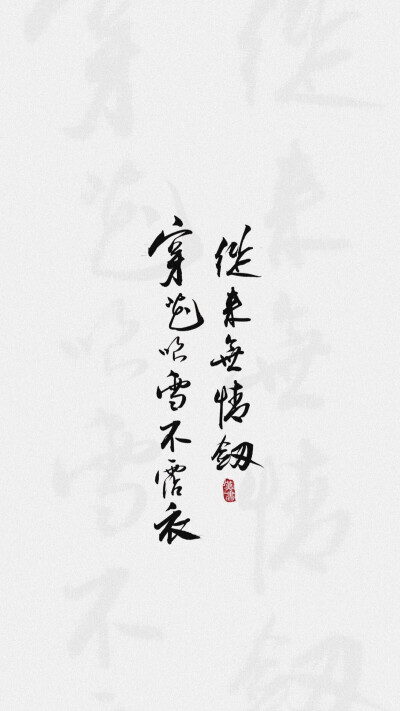 從來無情釼
穿花吹雪不霑衣